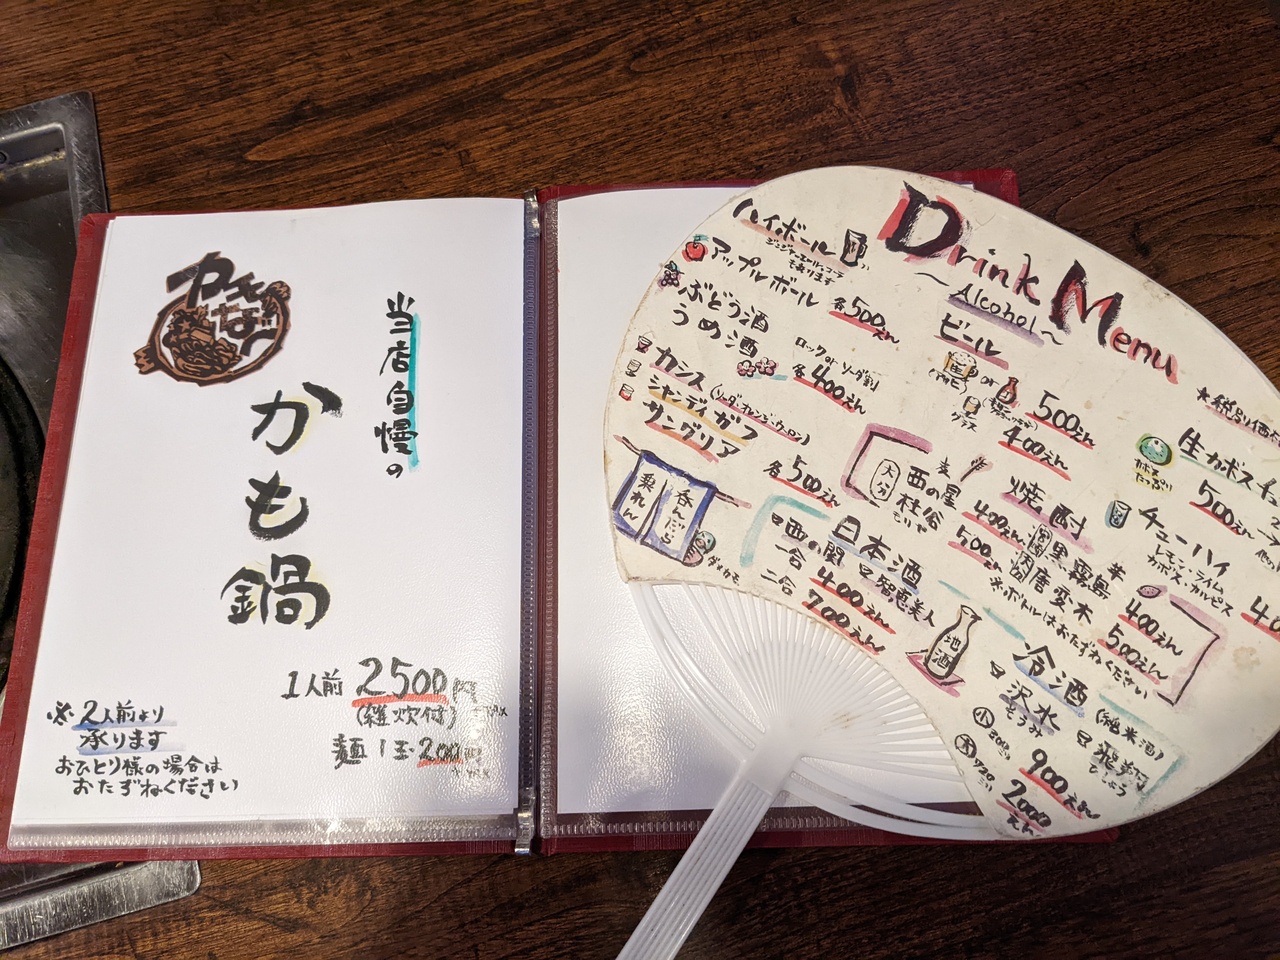 当店自慢の
かも鍋
1人前 2500円
(雑炊付)
麺1玉 200円
※2人前より
承ります
おひとり様の場合は
おたずねください
Drink Menu
~Alcohol~
ハイボール
もあります
アップルボール 各500えん
ぶどう酒
うめ酒
ロック or ソーダ割
各400えん
カシス(ソーダ・オレンジ・ウーロン)
シャンディガフ
サングリア
各500えん
呑んだら
乗れん
ダメカモ
ビール
生 or
(アサヒ)
グラス
500えん
400えん
★税別価
生カボスチュ
カボス
たっぷり
500えん
チューハイ
レモン・ライム
カボス・カルピス
焼酎
麦
大分
西の星
400えん
500えん
宮崎
黒霧島 芋
400えん
500えん
※ボトルはおたずねください
日本酒
西の関
智恵美人
一合 400えん
二合 700えん
地酒
冷酒
(純米酒)
沢水
小
900えん
大
2000えん